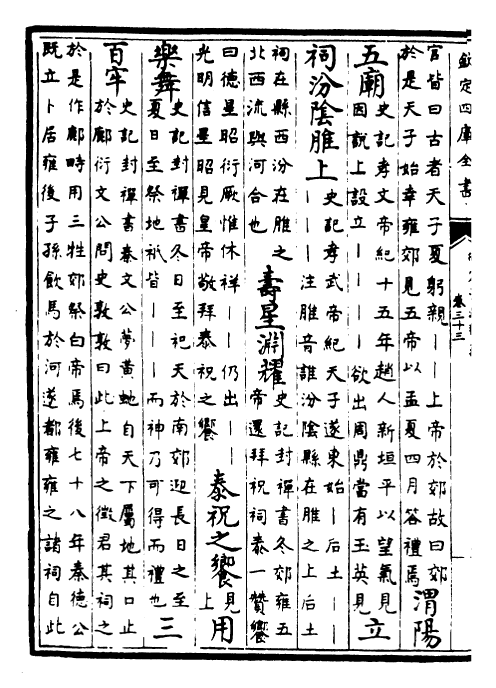 欽定四庫全書
卷三十三
官皆曰古者天子夏躬親｜｜上帝於郊故曰郊
於是天子始幸雍郊見五帝以孟夏四月答禮焉
渭陽
五廟
史記孝文帝紀十五年趙人新垣平以望氣見
因說上設立｜｜｜｜欲出周鼎當有玉英見
立
祠汾陰脽上
史記孝武帝紀天子遂東始｜后土｜｜
｜｜｜注脽音誰汾陰縣在脽之上后土
祠在縣西汾在脽之
北西流與河合也
壽星淵耀
史記封禪書冬郊雍五
帝還拜祝祠泰一贊饗
曰德星昭衍厥惟休祥｜｜仍出｜｜
光明信星昭見皇帝敬拜泰祝之饗
泰祝之饗
見
上
用
樂舞
史記封禪書冬日至祀天於南郊迎長日之至
夏日至祭地祇皆｜｜｜而神乃可得而禮也
三
百牢
史記封禪書秦文公夢黃蛇自天下屬地其口止
於鄜衍文公問史敦敦曰此上帝之徵君其祠之
於是作鄜畤用三牲郊祭白帝焉後七十八年秦德公
既立卜居雍後子孫飲馬於河遂都雍雍之諸祠自此